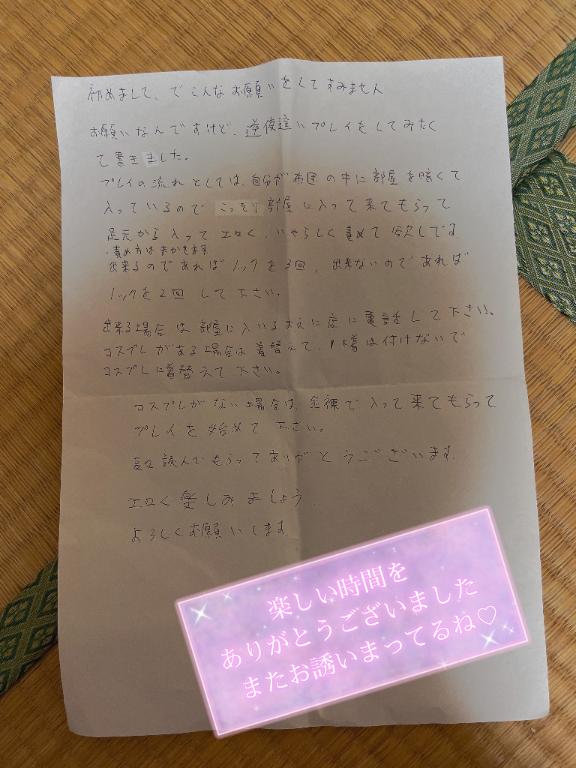 初めまして、でこんなお願いをしてすみません
お願いなんですけど、逆夜這いプレイをしてみたく
て書きました。
プレイの流れとしては、自分がお布団の中に部屋を暗くて
入っているので こっそり部屋に入って来てもらって
足元から入ってエロく、いやらしく責めて欲しいです
・責め方はおまかせます
出来るのであればノックを3回、出来ないのであれば
ノックを2回して下さい。
出来る場合は部屋に入いるまえに店に電話をして下さい。
コスプレがある場合は着替えて、下着は付けないで
コスプレに着替えて下さい。
コスプレがない場合は、全裸で入って来てもらって
プレイを始めて下さい。
読んでもらってありがとうございます
エロく楽しみましょう
よろしくお願いします
楽しい時間を
ありがとうございました
またお誘いまってるね♡